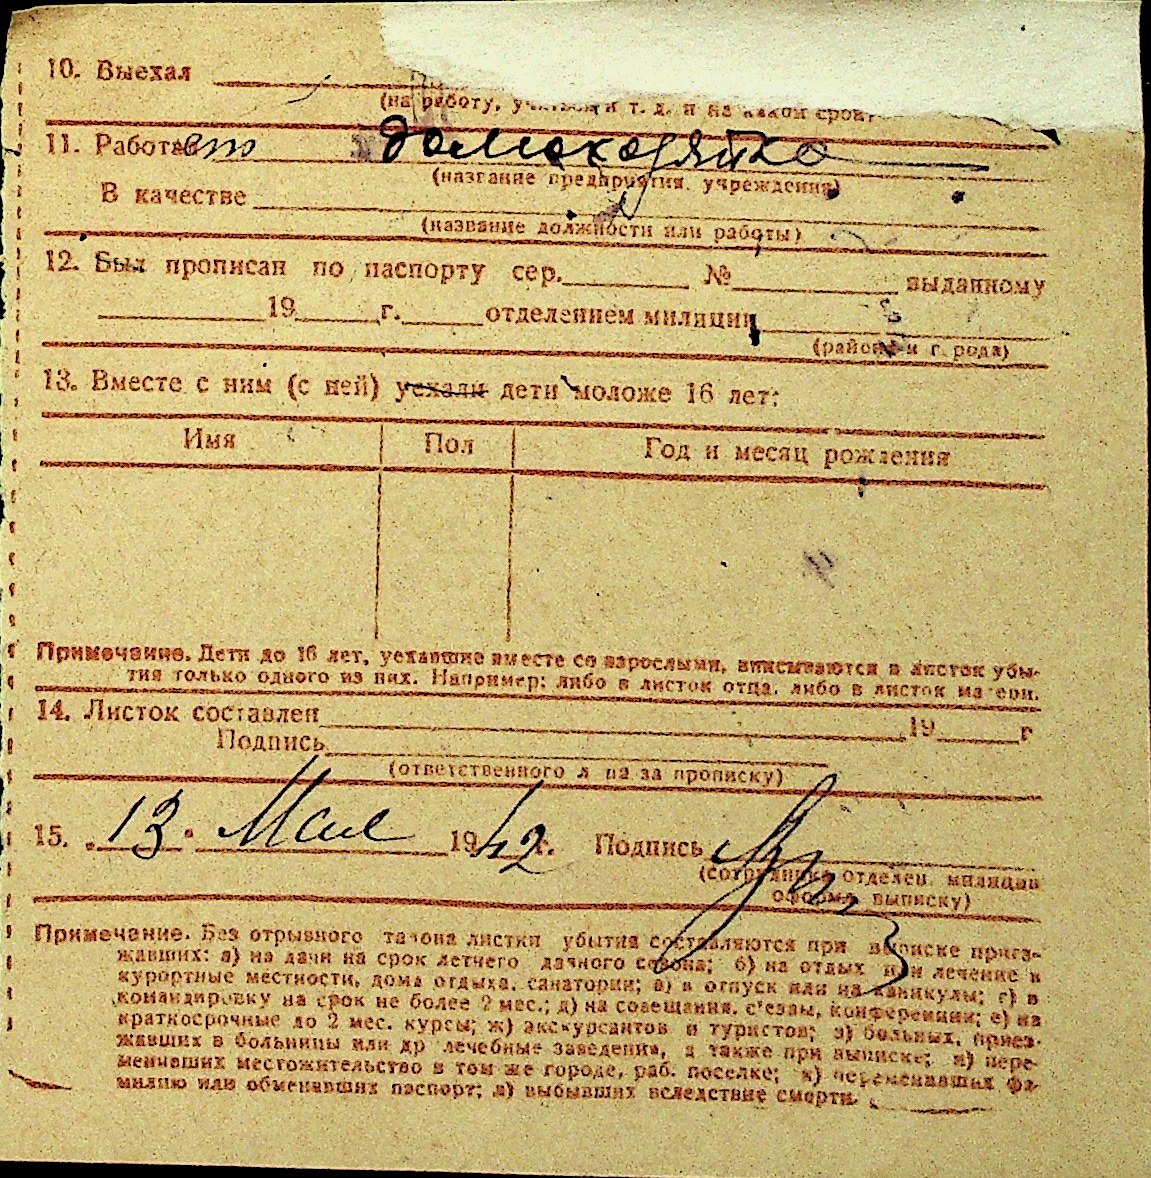 10. Выехал
(на работу, учиться и т. д. и на какой срок)
11. Работает домохозяйка
(название предприятия, учреждения)
В качестве
(название должности или работы)
12. Был прописан по паспорту сер. № выданному
19 г. отделением милиции
(район и города)
13. Вместе с ним (с ней) уехали дети моложе 16 лет:
Имя Пол Год и месяц рождения
Примечание. Дети до 16 лет, уехавшие вместе со взрослыми, вписываются в листок убы-
тия только одного из них. Например: либо в листок отца, либо в листок матери.
14. Листок составлен 19 г
Подпись
(ответственного лица за прописку)
15. "13" Мая 1942 г. Подпись
(сотрудника отделен. милиции
оформ. выписку)
Примечание. Без отрывного талона листки убытия составляются при выписке приез-
жавших: а) на дачи на срок летнего дачного сезона; б) на отдых или лечение в
курортные местности, дома отдыха, санатории; в) в отпуск или на каникулы; г) в
командировку на срок не более 2 мес.; д) на совещания, с'езды, конференции; е) на
краткосрочные до 2 мес. курсы; ж) экскурсантов и туристов; з) больных, приез-
жавших в больницы или др лечебные заведения, а также при выписке; и) пере-
менивших местожительство в том же городе, раб. поселке; к) переменивших фа-
милию или обменявших паспорт; л) выбывших вследствие смерти.